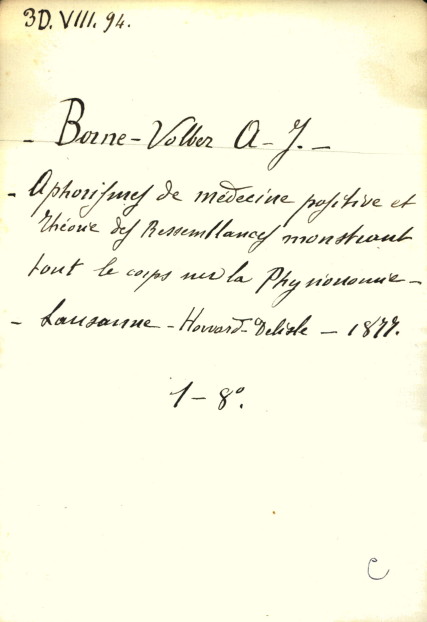 3D. VIII. 94.
- Borne-Volber A-J. -
- Aphorismes de médecine positive et
théorie des Ressemblances monstrant
tout le corps sur la Physionomie -
- Lausanne - Howard-Delisle - 1877.
1 - 8°.
C